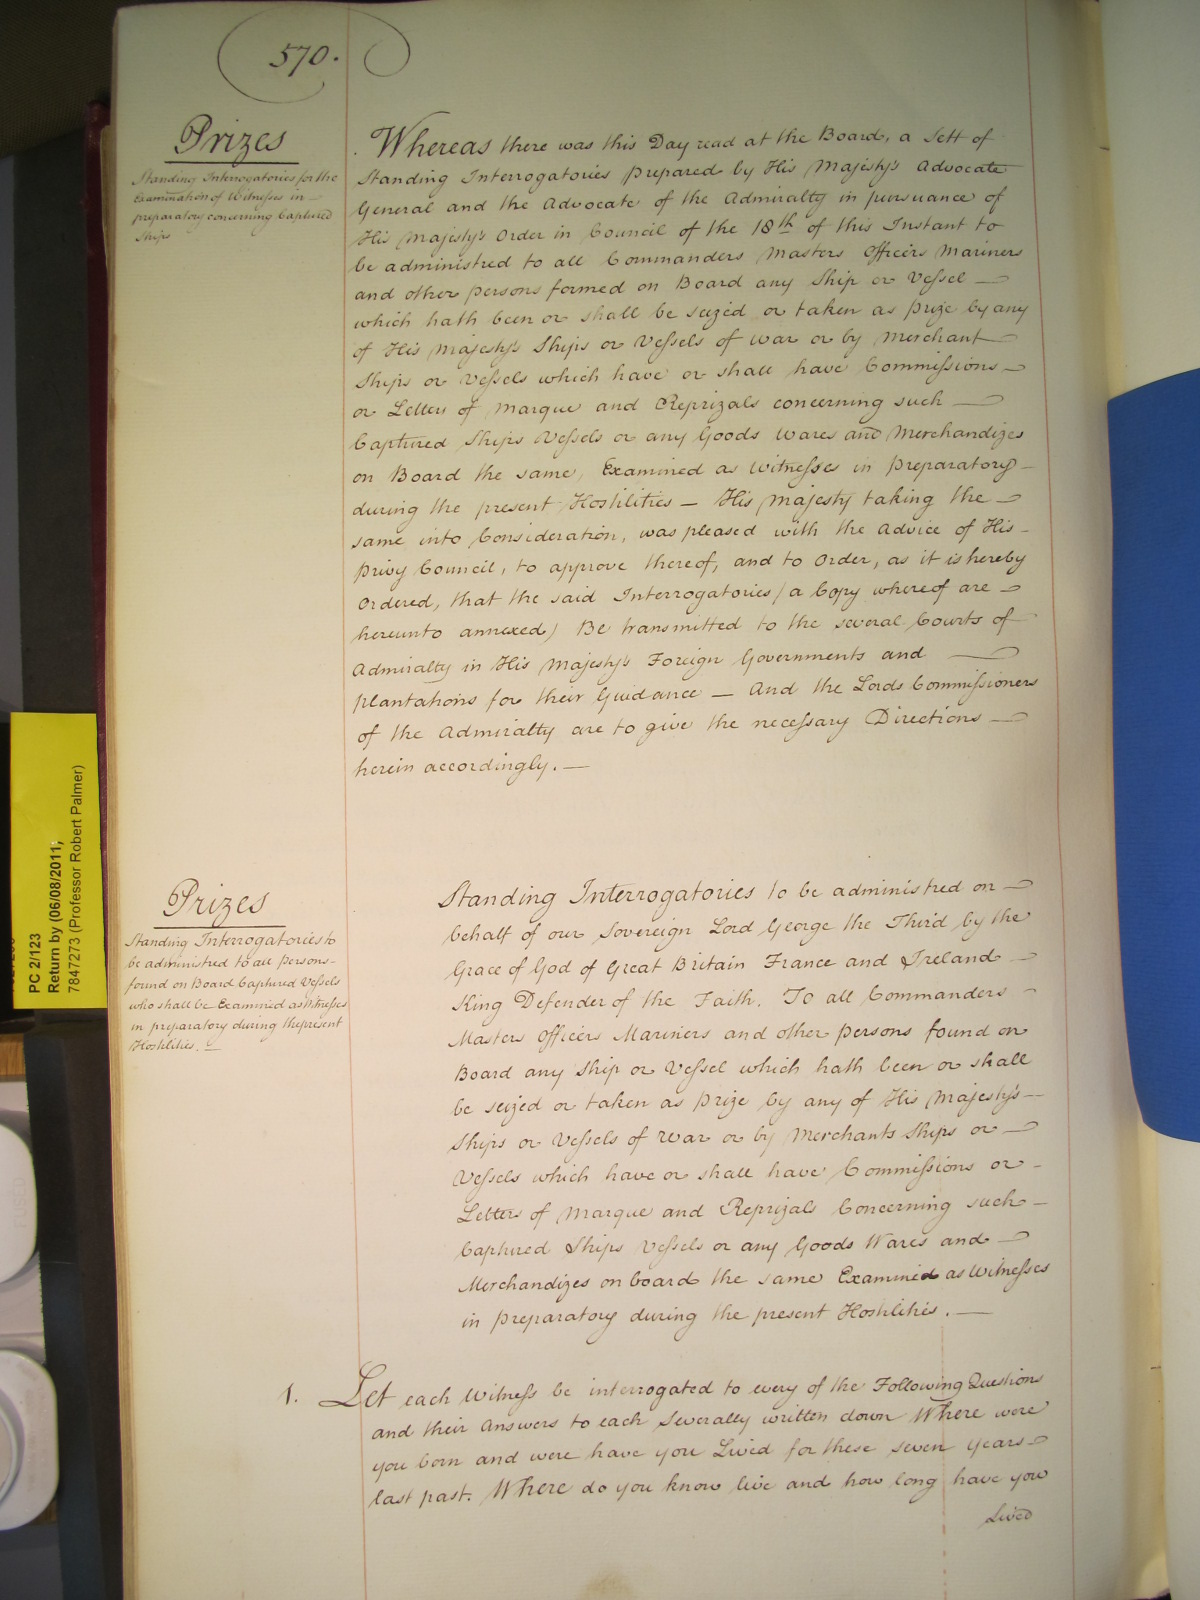 570.
Prizes
Standing Interrogatories for the
Examination of Witnesses in
preparatory concerning Captured
Ships
Whereas there was this Day read at the Board, a Sett of
Standing Interrogatories prepared by His Majesty's Advocate
General and the Advocate of the Admiralty in pursuance of
His Majesty's Order in Council of the 18th of this Instant to
be administred to all Commanders Masters Officers Mariners
and other persons formed on Board any Ship or Vessel
which hath been or shall be seized or taken as prize by any
of His Majesty's Ships or Vessels of war or by Merchant
Ships or Vessels which have or shall have Commissions
or Letters of marque and Reprizals concerning such
Captured Ships Vessels or any Goods Wares and Merchandizes
on Board the same, Examined as Witnesses in preparatory
during the present Hostilities — His Majesty taking the
same into Consideration, was pleased with the Advice of His
Privy Council, to approve thereof, and to Order, as it is hereby
Ordered, that the said Interrogatories / a Copy whereof are
hereunto annexed / Be transmitted to the several Courts of
Admiralty in His Majesty's Foreign Governments and
plantations for their Guidance — And the Lords Commissioners
of the Admiralty are to give the necessary Directions
herein accordingly. —
Prizes
Standing Interrogatories to
be administred to all persons
found on Board Captured Vessels
who shall be Examined as Witnesses
in preparatory during the present
Hostilities. —
Standing Interrogatories to be administred on
behalf of our Sovereign Lord George the Third by the
Grace of God of Great Britain France and Ireland
King Defender of the Faith. To all Commanders
Masters Officers Mariners and other persons found on
Board any Ship or Vessel which hath been or shall
be seized or taken as prize by any of His Majesty's
Ships or Vessels of War or by Merchants Ships or
Vessels which have or shall have Commissions or
Letters of Marque and Reprizals Concerning such
Captured Ships Vessels or any Goods Wares and
Merchandizes on board the same Examined as Witnesses
in preparatory during the present Hostilities. —
1. Let each Witness be interrogated to every of the Following Questions
and their Answers to each Severally written down Where were
you born and were have you Lived for these seven years
last past. Where do you know live and how long have you
Lived
PC 2/123
Return by (06/08/2011;
7847273 (Professor Robert Palmer)